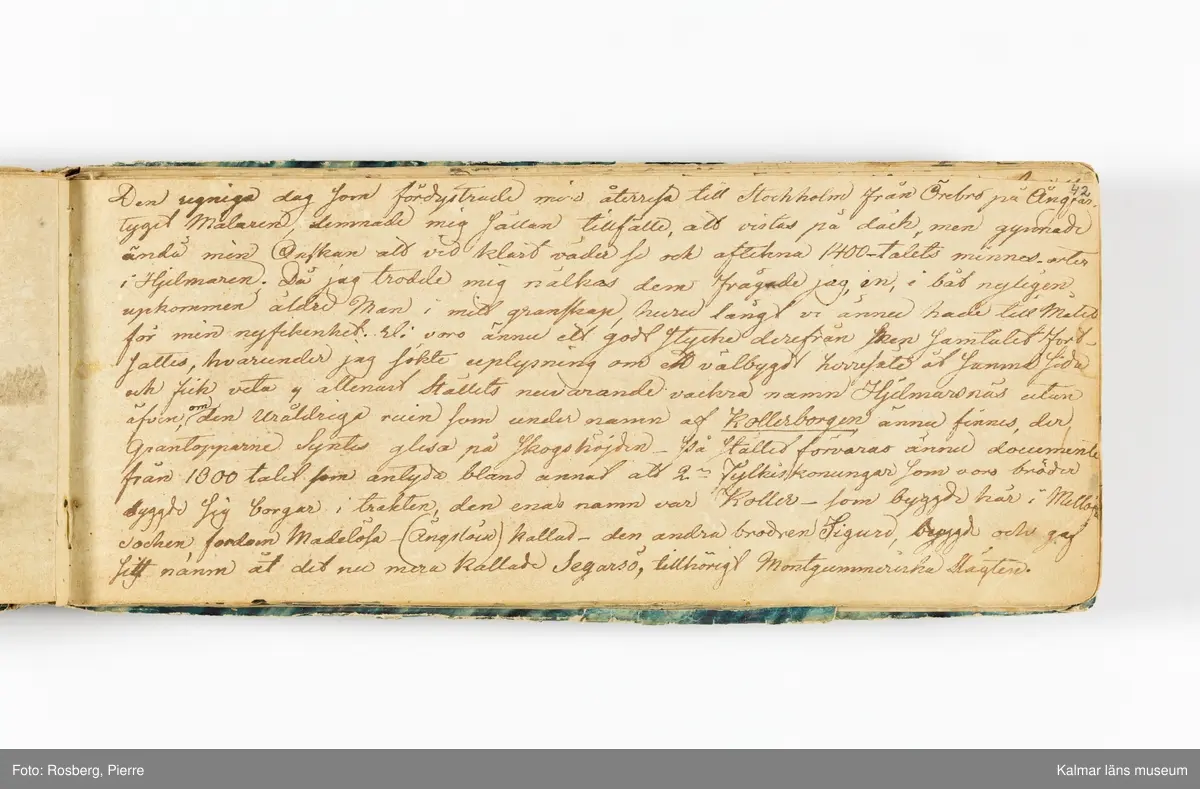 42
Den regniga dag som fördystrade min återresa till Stockholm från Örebro på Ång-
tyget Mälaren, lemnade mig sällan tillfälle, att vistas på däck, men gynnade
ändå min Önskan att vid klart väder se och aftekna 1400-talets minnes-orter
i Hjelmaren. Då jag trodde mig nalkas dem frågade jag, en, i båt nyligen
upkommen äldre Man i mitt granskap, huru långt vi ännu hade till Målet
för min nyfikenhet. Vi voro ännu ett godt stycke derifrån Men Samtalet fort-
sattes, hvarunder jag sökte uplysning om ett välbygdt herresäte åt samma sida
och fick veta ej allenast Ställets nuvarande vackra namn Hjelmarsnäs utan
äfven, om den uråldriga ruin som under namn af Kollerborgen ännu finnes, der
Grantopparne Syntes glesa på Skogshöjden — På Stället förvaras ännu documenter
från 1000 talet som antyda bland annat att 2ne Fylkiskonungar som voro bröder
byggde sig borgar i trakten, den enas namn var Koller — som byggde här i Mellösa
Socken fordom Madalösa — (Ängslösa) kallad — den andra brodren Sigurd, byggde och gaf
sitt namn åt det nu mera kallade Segersö, tillhörigt Montgummeriska Slägten.
Foto: Rosberg, Pierre
Kalmar läns museum